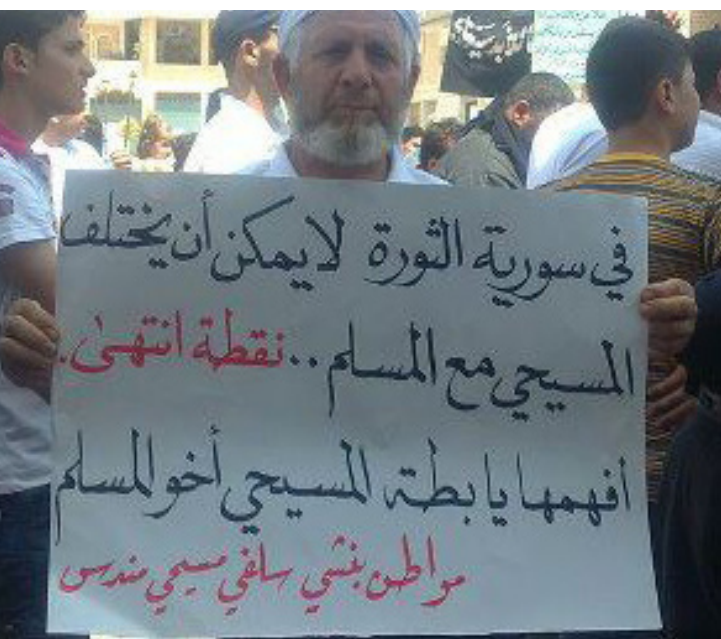 في سورية الثورة لا يمكن أن يختلف
المسيحي مع المسلم .. نقطة انتهى.
افهمها يا بطة المسيحي أخو المسلم
مواطن بنشي سلفي مسيحي مندس